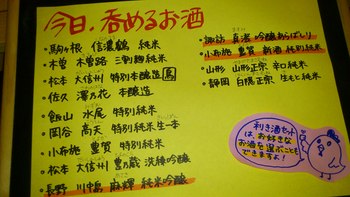 今日、呑めるお酒
・駒ヶ根 信濃鶴 純米
・木曽 木曽路 三割麹純米
・松本 大信州 特別本醸造
・佐久 澤の花 本醸造
・飯山 水尾 特別純米
・岡谷 高天 特別純米生一本
・小布施 豊賀 特別純米
・松本 大信州 豊乃蔵 洗練吟醸
・長野 川中島 幻舞 純米吟醸
・諏訪 真澄 吟醸あらばしり
・小布施 豊賀 新酒 純米吟醸
・山形 山形正宗 辛口純米
・静岡 白隠正宗 生もと純米
利き酒セット
は お好きな
お酒を選ぶことも
できますよ！